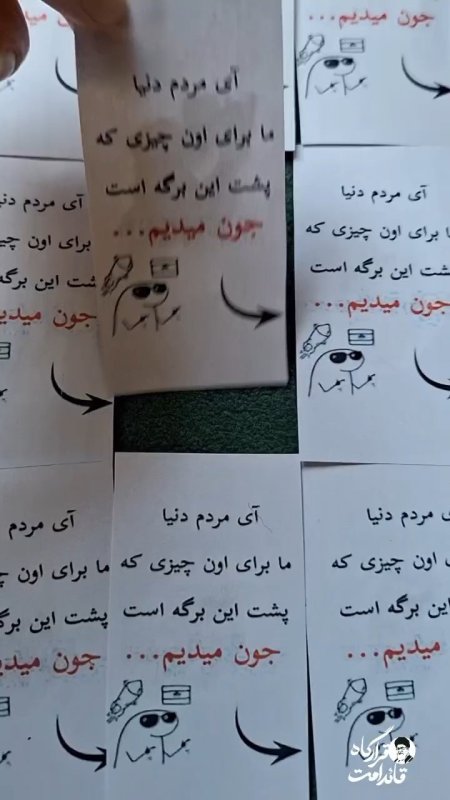 جون میدیم...
جون میدیم...
آی مردم دنیا
ما برای اون چیزی که
پشت این برگه است
جون میدیم...
آی مردم دنیا
برای اون چیزی که
پشت این برگه است
جون میدیم...
آی مردم دنیا
برای اون
پشت این برگه است
جون میدیم
آی مردم دنیا
ما برای اون چیزی که
پشت این برگه است
جون میدیم...
آی مردم
ما برای اون
پشت این
جون میدیم
آی مردم دنیا
اون چیزی که
این برگه است
میدیم...
قرارگاه
قائد امت